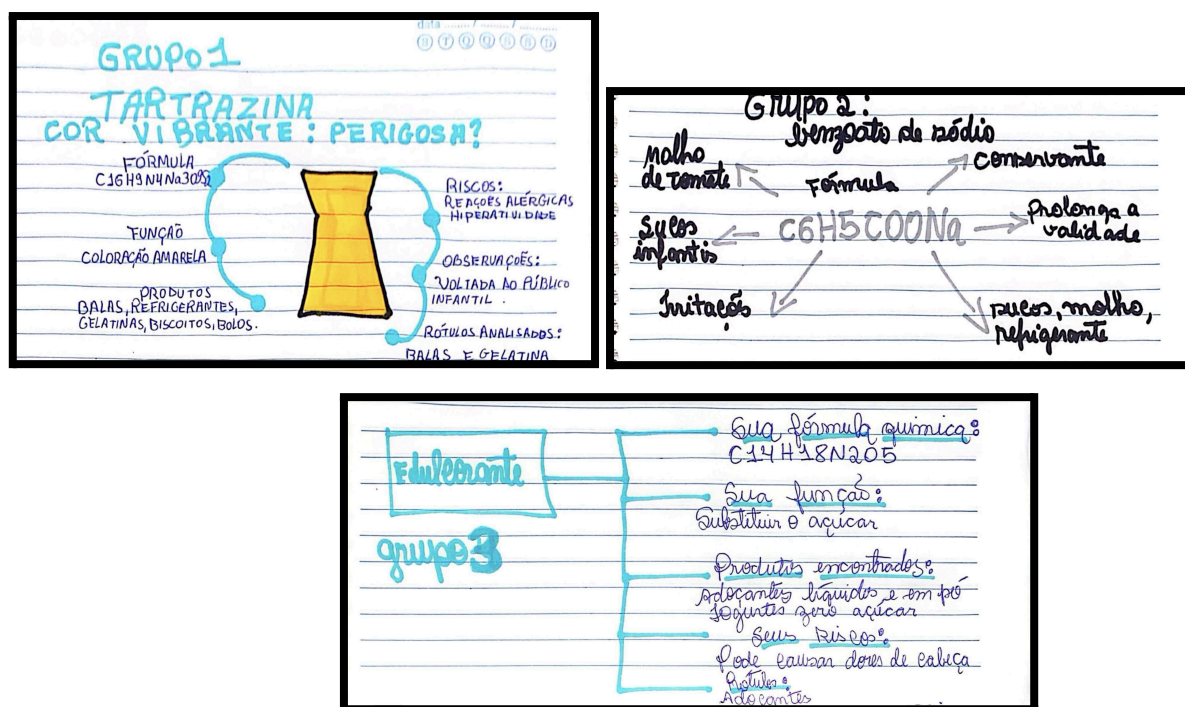 data ....... / ....... / .......
D T Q Q S S D
GRUPO 1
TARTRAZINA
COR VIBRANTE: PERIGOSA?
FÓRMULA
C16H9N4Na3O9S2
FUNÇÃO
COLORAÇÃO AMARELA
PRODUTOS
BALAS, REFRIGERANTES,
GELATINAS, BISCOITOS, BOLOS.
RISCOS:
REAÇÕES ALÉRGICAS
HIPERATIVIDADE
OBSERVAÇÕES:
VOLTADA AO PÚBLICO
INFANTIL.
RÓTULOS ANALISADOS:
BALAS E GELATINA
Grupo 2:
benzoato de sódio
Molho
de tomate
Fórmula
Conservante
Sucos
infantis
C6H5COONa
Prolonga a
validade
Irritação
sucos, molho,
refrigerante
Edulcorante
grupo 3
Sua fórmula química:
C14H18N2O5
Sua função:
Substituir o açúcar
Produtos encontrados:
Adoçantes líquidos e em pó
Iogurtes zero açúcar
Seus Riscos:
Pode causar dores de cabeça
Rótulos:
Adoçantes